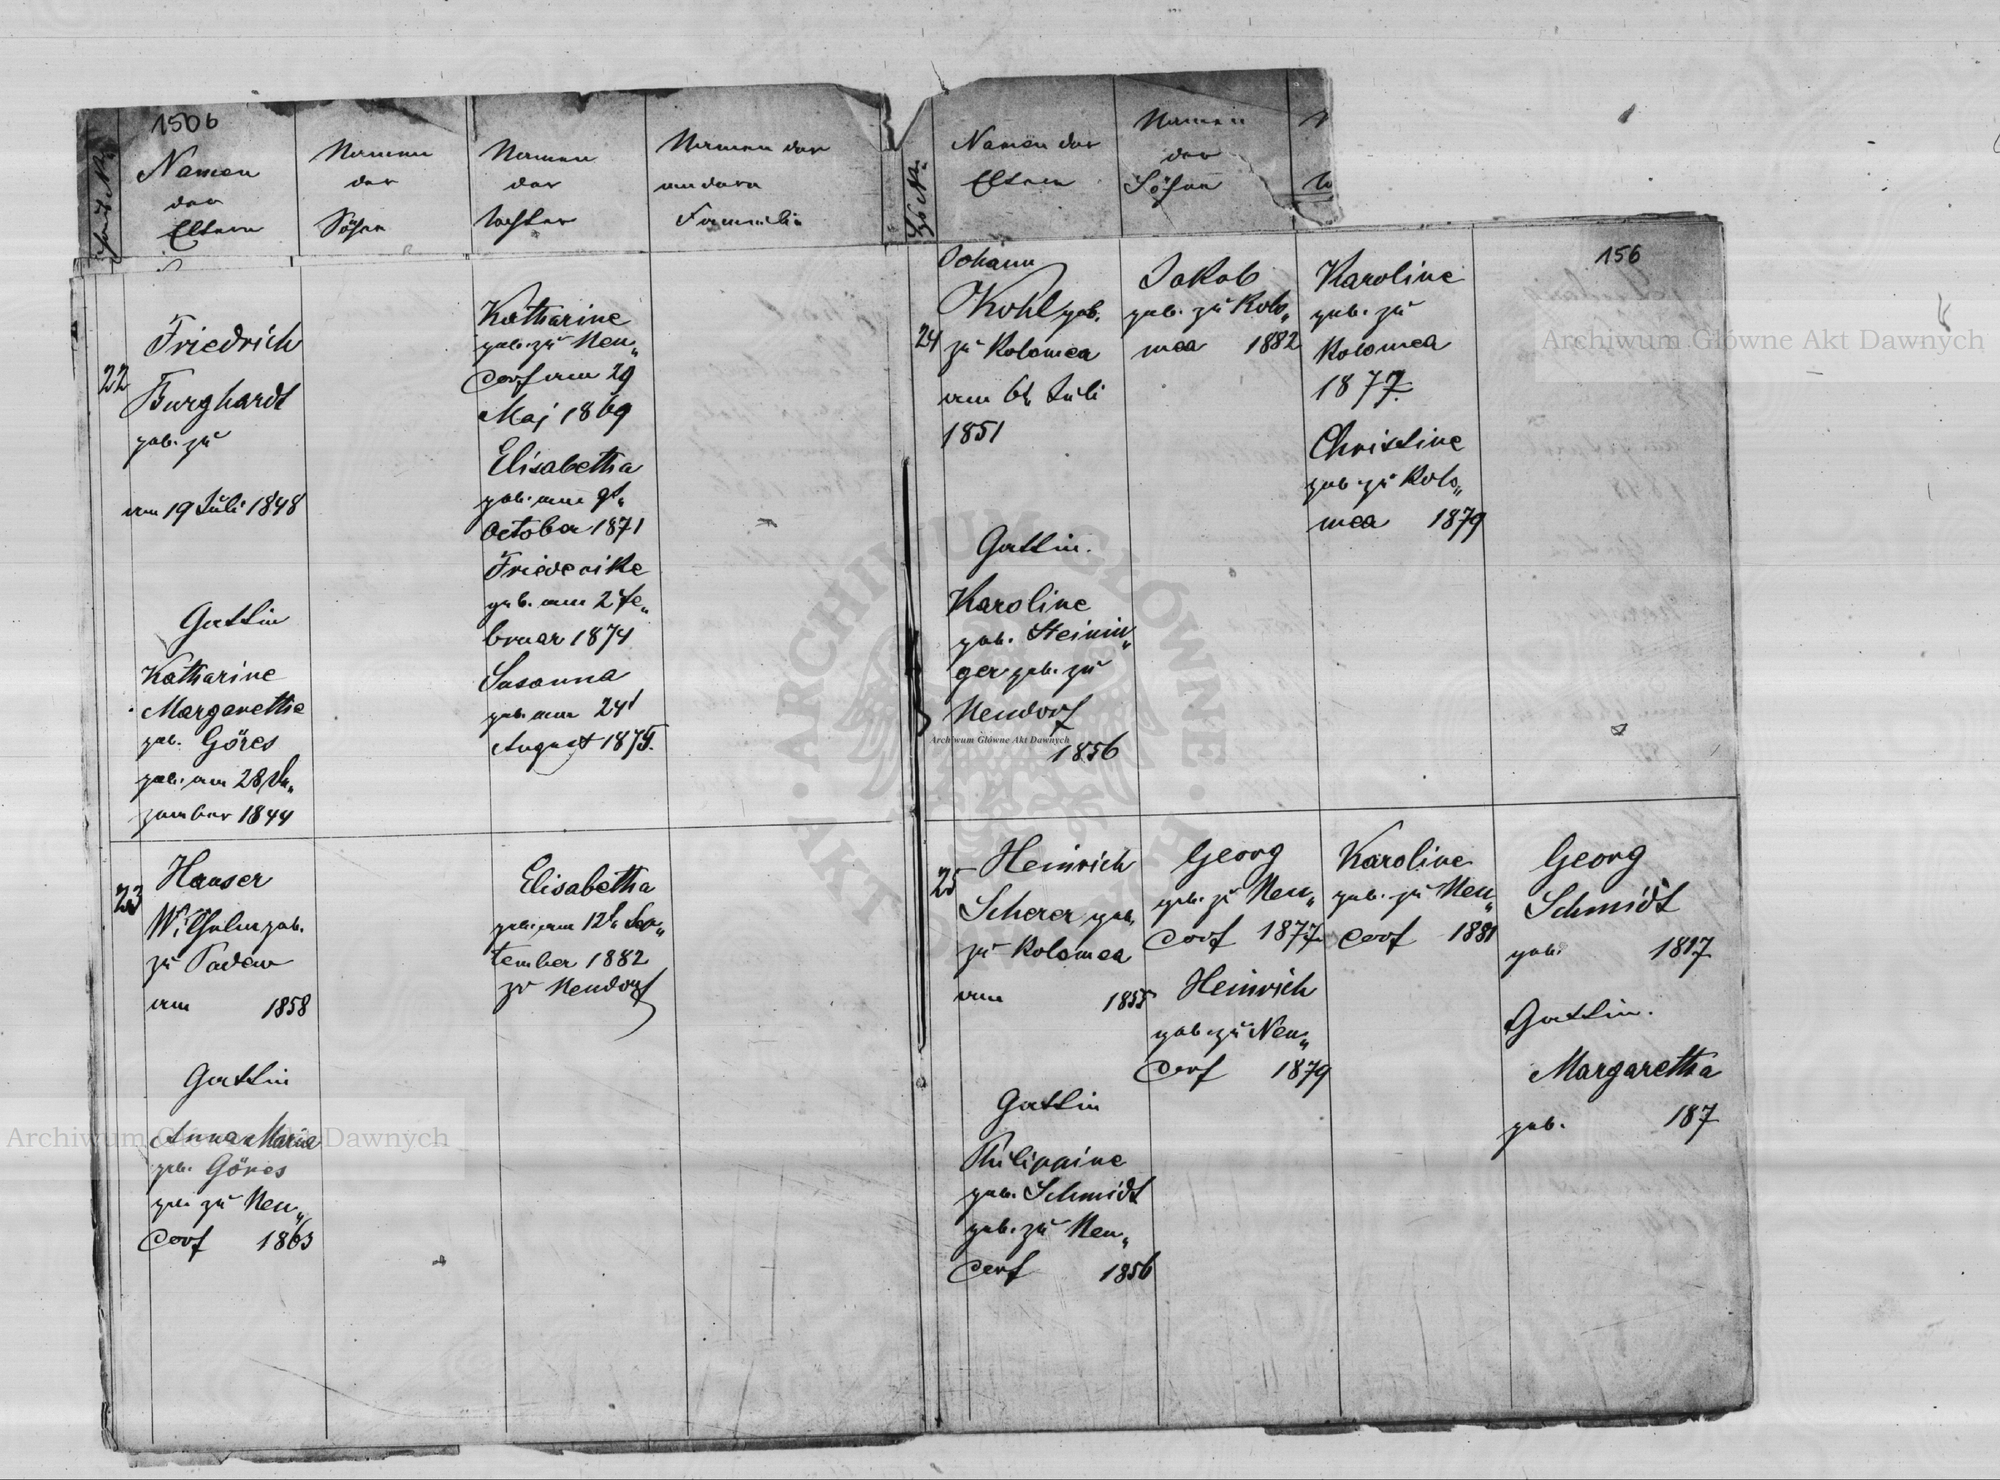 1506
Namen
der
Eltern
Namen
der
Söhne
Namen
der
Töchter
Namen der
andern
Familie
Namen der
Eltern
Namen
der
Söhne
22
Friedrich
Burghardt
geb. zu
am 19 Juli 1848
Gattin
Katharine
Margarethe
geb. Göres
geb. am 28 De„
zember 1844
Katharine
geb. zu Neu„
dorf am 29
Maj 1869
Elisabetha
geb. am 9t„
October 1871
Friederike
geb. am 2 Fe„
bruar 1874
Susanna
geb. am 24t
August 1875.
23
Hauser
Wilhelm geb.
zu
am 1858
Gattin
Anna Maria
geb. Göres
geb. zu Neu„
dorf 1863
Elisabetha
geb. am 12t Sep„
tember 1882
zu Neudorf
156
24
Johann
Kohl geb.
zu Kolomea
am 6t Juli
1851
Gattin.
Karoline
geb. Steinin„
ger geb. zu
Neudorf
1856
Jakob
geb. zu Kolo„
mea 1882
Karoline
geb. zu
Kolomea
1877.
Christine
geb. zu Kolo„
mea 1879
25
Heinrich
Scherer geb.
zu Kolomea
am 1855
Gattin
Philippine
geb. Schmidt
geb. zu Neu„
dorf 1856
Georg
geb. zu Neu„
dorf 1877
Heinrich
geb. zu Neu„
dorf 1879
Karoline
geb. zu Neu„
dorf 1881
Georg
Schmidt
geb. 1817
Gattin.
Margaretha
geb. 187
Archiwum Główne Akt Dawnych
Archiwum Główne Akt Dawnych
Archiwum Główne Akt Dawnych
ARCHIWUM GŁÓWNE AKT